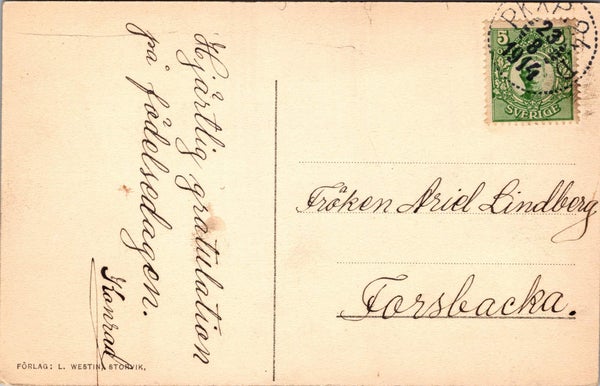 Hjärtlig gratulation
på födelsedagen.
Konrad
PKXP
23
8
1914
5
SVERIGE
Fröken Ariel Lindberg
Forsbacka.
FÖRLAG: L. WESTIN, STORVIK.